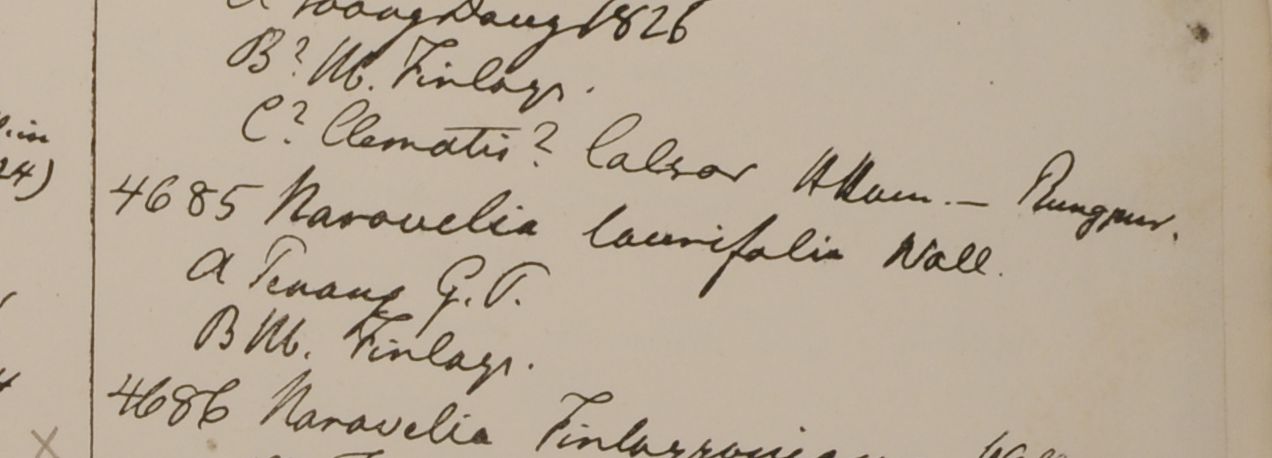 1826
B? M. Finlays.
C? Clematis? Calsor HHam. — Rungpur.
4685 Naravelia laurifolia Wall.
A Penang G. P.
B M. Finlays.
4686 Naravelia Finlaysoniana Wall